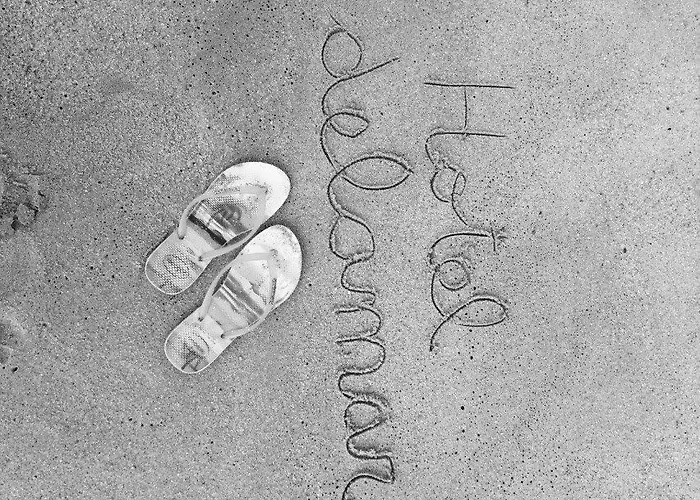 Hotel
delamar